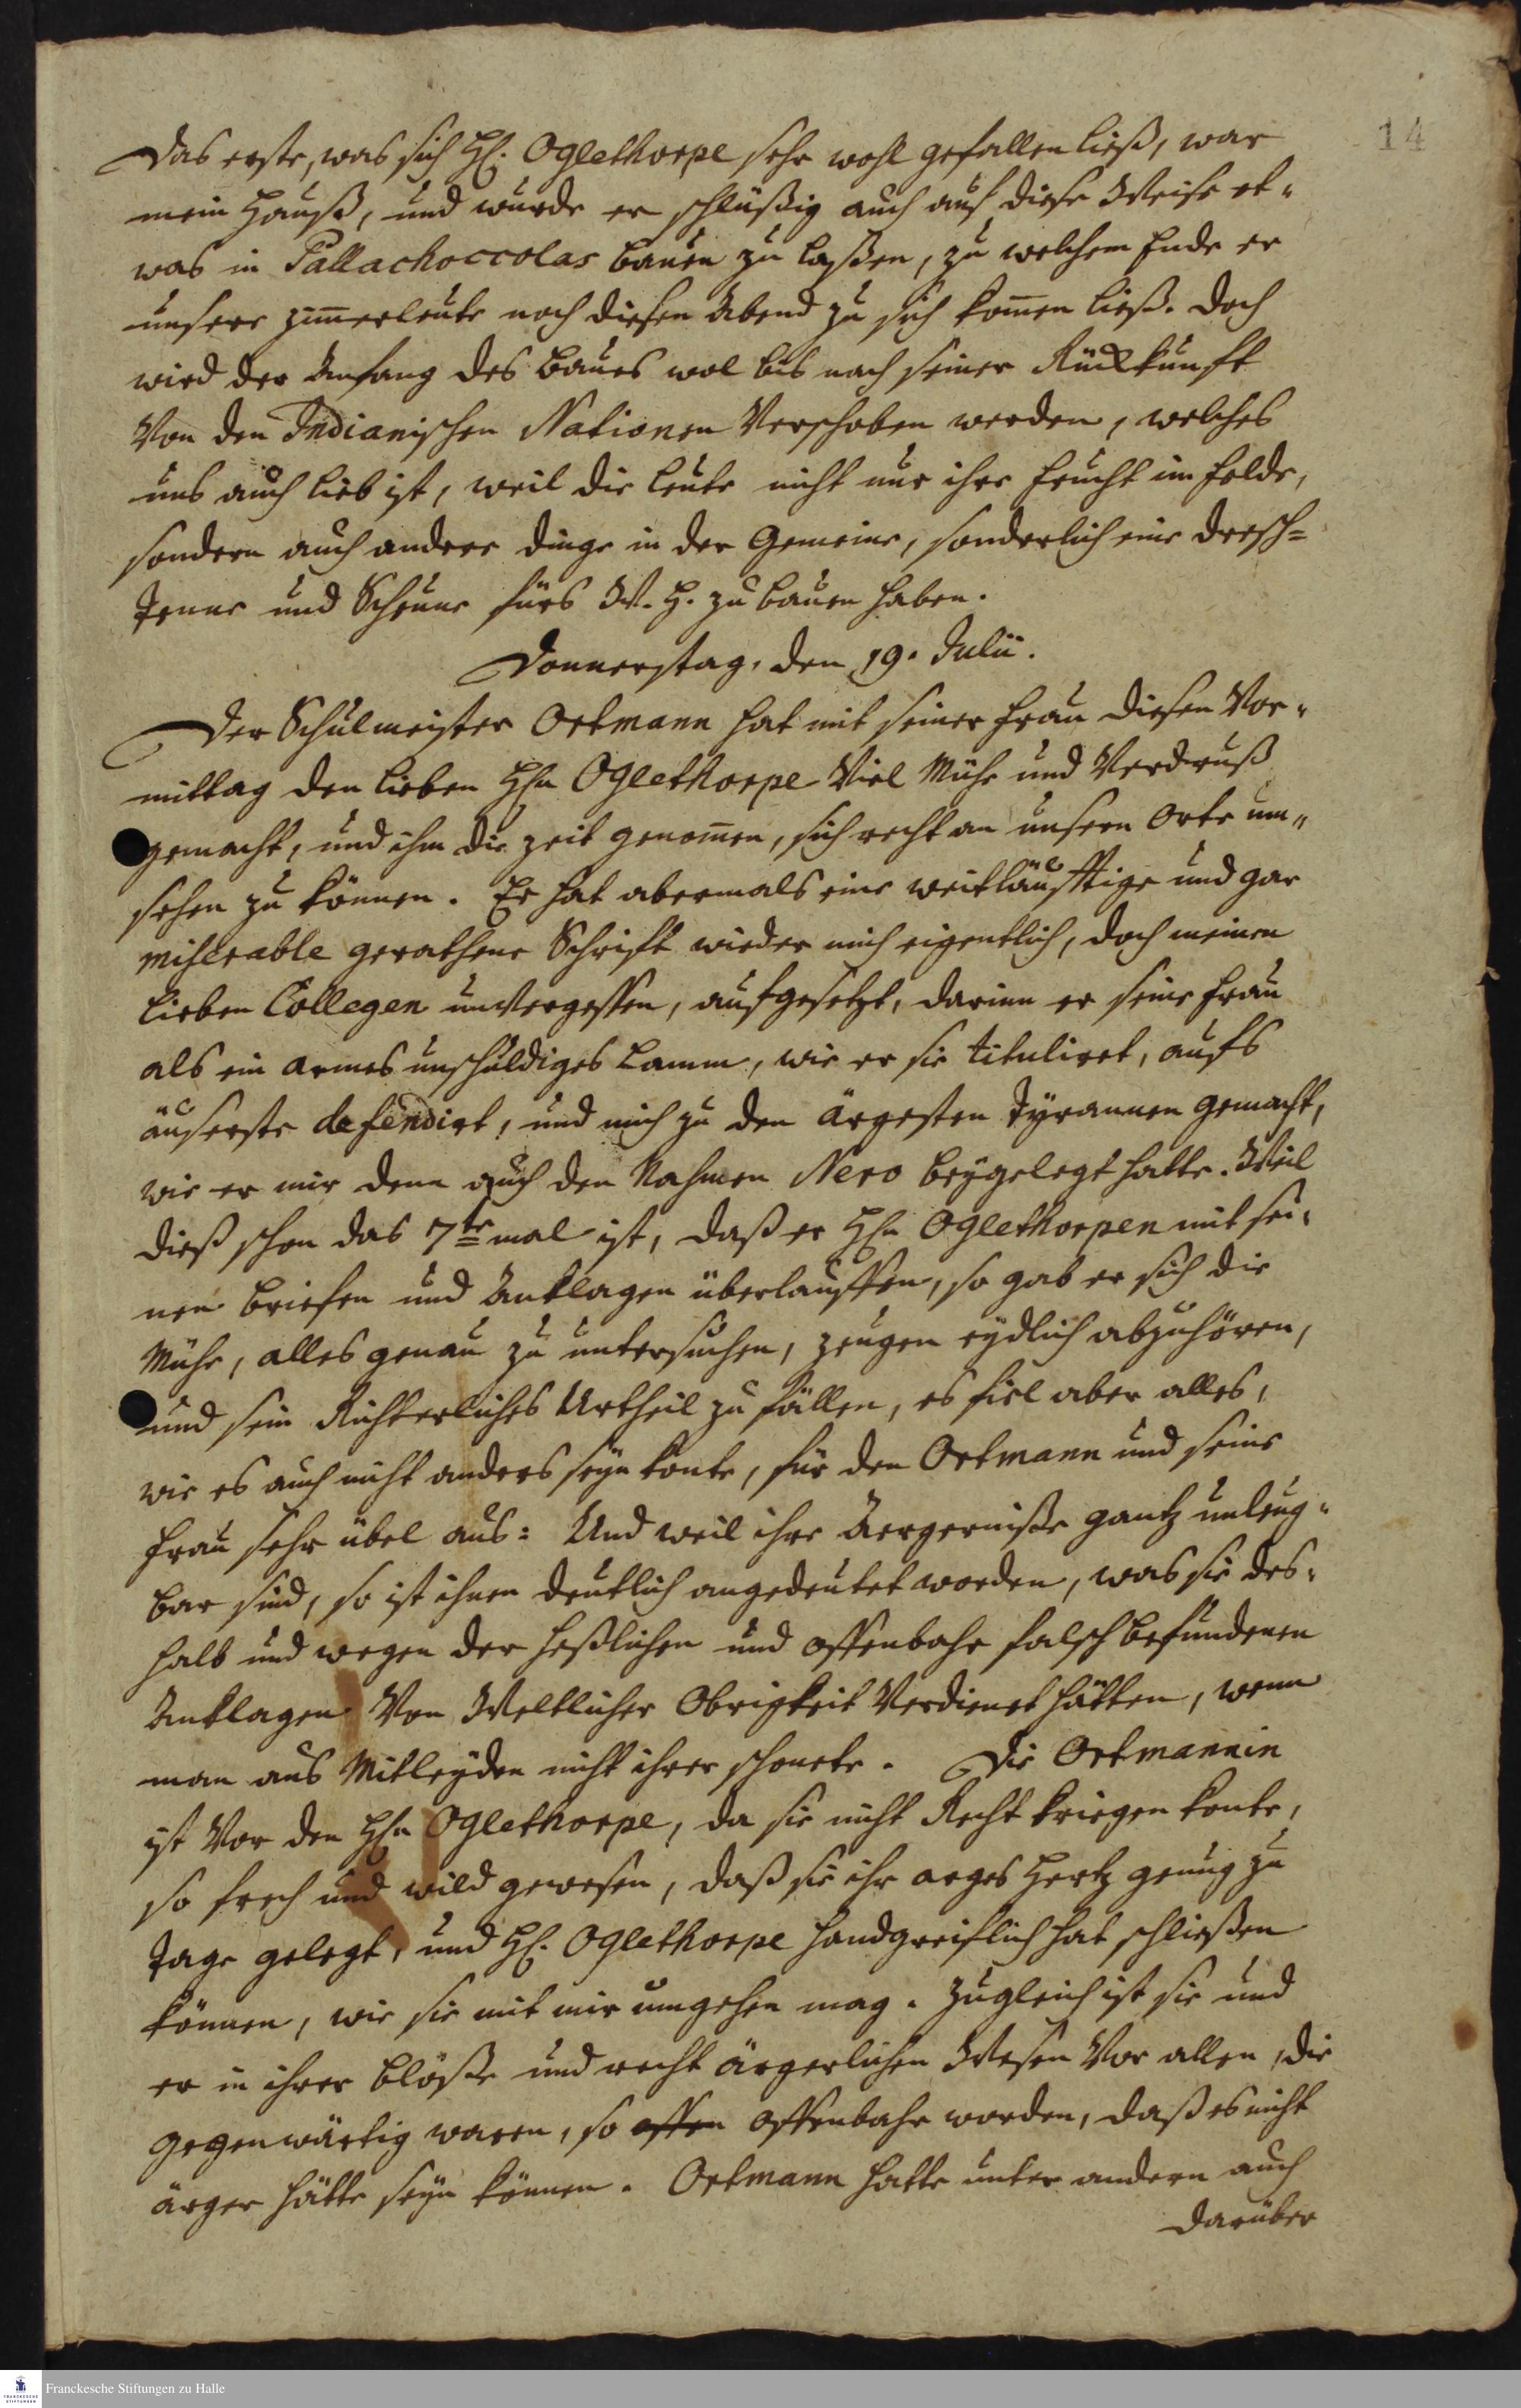 14
Das erste, was sich H. Oglethorpe sehr wohl gefallen ließ, war
mein Hauß, und wurde er schlüßig auch auf diese Weise et-
was in Pallachoccolas bauen zu laßen, zu welchem Ende er
unsere Zim̅erleute noch diesen Abend zu sich kom̅en ließ. Doch
wird der Anfang des Baues wol bis nach seiner Rückkunft
Von den Indianischen Nationen Verschoben werden, welches
uns auch lieb ist, weil die Leute nicht nur ihre Frucht im Felde,
sondern auch andere Dinge in der Gemeine, sonderlich eine Dresch=
Tenne und Scheune fürs W. H. zu bauen haben.
Donnerstag, den 19. Julii.
Der Schulmeister Ortmann hat mit seiner Frau diesen Vor-
mittag den lieben Hn Oglethorpe Viel Mühe und Verdruß
gemacht, und ihm die Zeit genom̅en, sich recht an unsern Orte um-
sehen zu können. Er hat abermals eine weitläufftige und gar
miserable gerathene Schrift wieder mich eigentlich, doch meinen
lieben Collegen unvergessen, aufgesetzt, darinn er seine Frau
als ein armes unschuldiges Lamm, wie er sie tituliret, aufs
äuserste defendirt, und mich zu den ärgesten Tyrannen gemacht,
wie er mir denn auch den Nahmen Nero beygelegt hatte. Weil
dieß schon das 7te mal ist, daß er Hn Oglethorpen mit sei-
nen Briefen und Anklagen überlauffen, so gab er sich die
Mühe, alles genau zu untersuchen, Zeugen eydlich abzuhören,
und sein Richterliches Urtheil zu fällen, es fiel aber alles,
wie es auch nicht anders seyn konte, für den Ortmann und seine
Frau sehr übel aus: Und weil ihre Aergerniße gantz unleug-
bar sind, so ist ihnen deutlich angedeutet worden, was sie des-
halb und wegen der heßlichen und offenbahr falsch befundenen
Anklagen Von Weltlicher Obrigkeit Verdienet hätten, wenn
man aus Mitleyden nicht ihrer schonete. Die Ortmannin
ist Vor den Hn Oglethorpe, da sie nicht Recht kriegen konte,
so frech und wild gewesen, daß sie ihr arges Hertz genug zu
Tage gelegt, und H. Oglethorpe handgreiflich hat schließen
können, wie sie mit mir umgehen mag. Zugleich ist sie und
er in ihrer Blöße und recht ärgerlichen Wesen Vor allen, die
gegenwärtig waren, so offen offenbahr worden, daß es nicht
ärger hätte seyn können. Ortmann hatte unter andern auch
darüber
Franckesche Stiftungen zu Halle
FRANCKESCHE
STIFTUNGEN